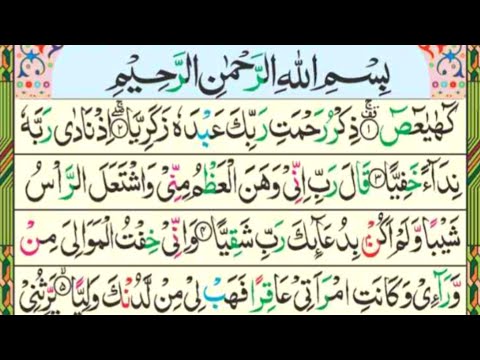 بِسْمِ اللهِ الرَّحْمٰنِ الرَّحِيْمِ
كٓهٰيٰعٓصٓ ۚ۝۱ ذِكْرُ رَحْمَتِ رَبِّكَ عَبْدَهٗ زَكَرِيَّا ۖۚ۝۲ اِذْ نَادٰى رَبَّهٗ
نِدَآءً خَفِيًّا ۝۳ قَالَ رَبِّ اِنِّىْ وَهَنَ الْعَظْمُ مِنِّىْ وَاشْتَعَلَ الرَّاْسُ
شَيْبًا وَّلَمْ اَكُنْۢ بِدُعَآئِكَ رَبِّ شَقِيًّا ۝۴ وَاِنِّىْ خِفْتُ الْمَوَالِىَ مِنْ
وَّرَآءِىْ وَكَانَتِ امْرَاَتِىْ عَاقِرًا فَهَبْ لِىْ مِنْ لَّدُنْكَ وَلِيًّا ۙ۝۵ يَّرِثُنِىْ